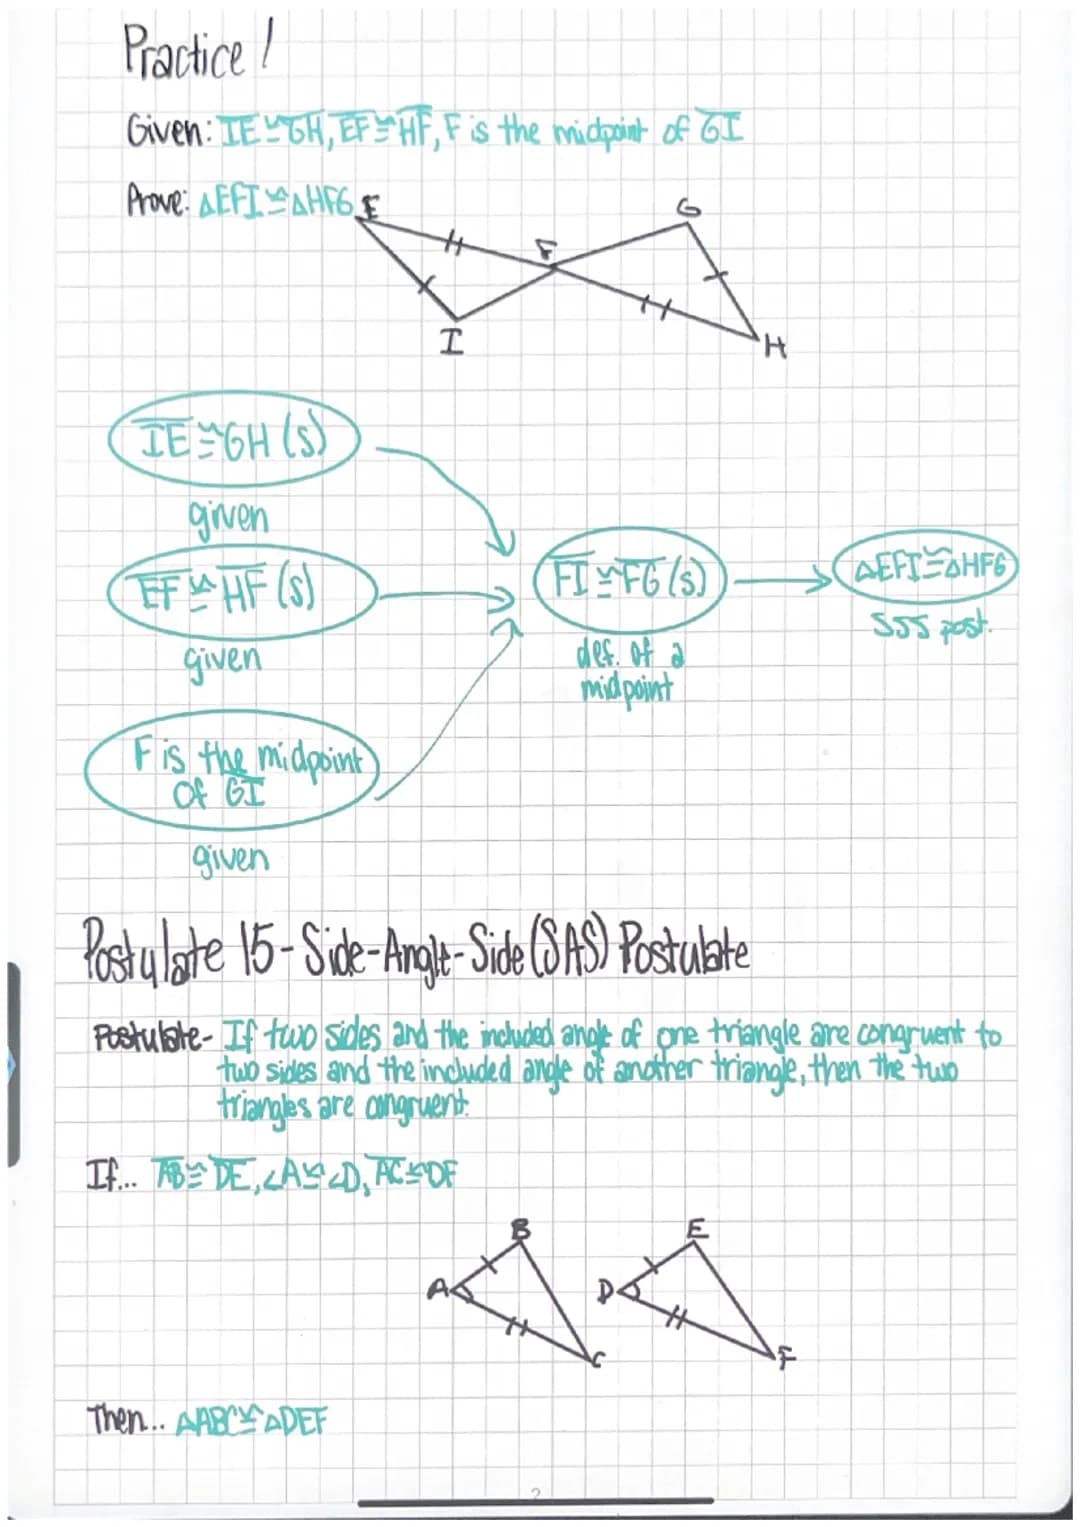 Practice!
Given: IE≅GH, EF≅HF, F is the midpoint of GI
Prove: △EFI≅△HFG
E
G
F
I
H
IE≅GH (S)
given
EF≅HF (S)
given
F is the midpoint
of GI
given
FI≅FG (S)
def. of a
midpoint
△EFI≅△HFG
SSS post.
Postulate 15-Side-Angle-Side (SAS) Postulate
Postulate- If two sides and the included angle of one triangle are congruent to
two sides and the included angle of another triangle, then the two
triangles are congruent.
If... AB≅DE, ∠A≅∠D, AC≅DF
B
E
A
D
C
F
Then... △ABC≅△DEF
2